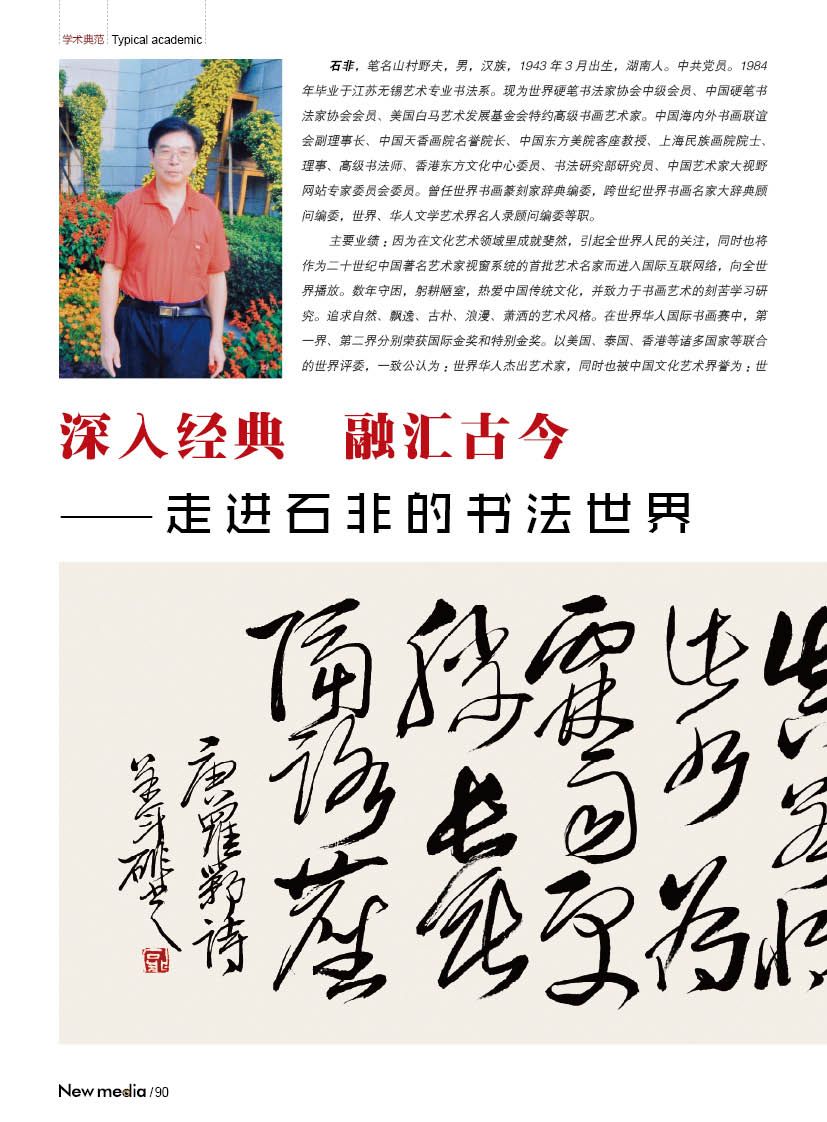 学术典范 Typical academic
石非，笔名山村野夫，男，汉族，1943 年 3 月出生，湖南人。中共党员。1984
年毕业于江苏无锡艺术专业书法系。现为世界硬笔书法家协会中级会员、中国硬笔书
法家协会会员、美国白马艺术发展基金会特约高级书画艺术家。中国海内外书画联谊
会副理事长、中国天香画院名誉院长、中国东方美院客座教授、上海民族画院院士、
理事、高级书法师、香港东方文化中心委员、书法研究部研究员、中国艺术家大视野
网站专家委员会委员。曾任世界书画篆刻家辞典编委，跨世纪世界书画名家大辞典顾
问编委，世界、华人文学艺术界名人录顾问编委等职。
主要业绩：因为在文化艺术领域里成就斐然，引起全世界人民的关注，同时也将
作为二十世纪中国著名艺术家视窗系统的首批艺术名家而进入国际互联网络，向全世
界播放。数年守困，躬耕陋室，热爱中国传统文化，并致力于书画艺术的刻苦学习研
究。追求自然、飘逸、古朴、浪漫、萧洒的艺术风格。在世界华人国际书画赛中，第
一界、第二界分别荣获国际金奖和特别金奖。以美国、泰国、香港等诸多国家等联合
的世界评委，一致公认为：世界华人杰出艺术家，同时也被中国文化艺术界誉为：世
深入经典 融汇古今
——走进石非的书法世界
真若将
此水为
霖雨更
胜长垂
隔路尘
唐罗邺诗
New media /90